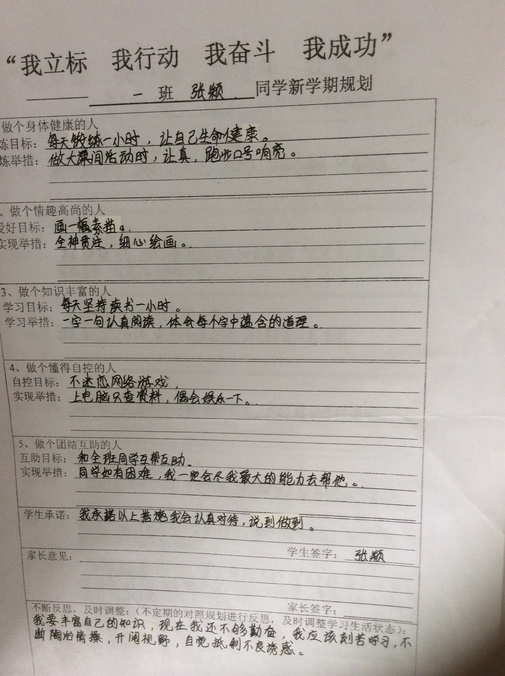 “我立标　我行动　我奋斗　我成功”
一 班 张颖 同学新学期规划
做个身体健康的人
炼目标：每天锻炼一小时，让自己生命健康。
炼举措：做大课间活动时，认真，跑步口号响亮。
、做个情趣高尚的人
爱好目标：画一幅素描。
实现举措：全神贯注，细心绘画。
3、做个知识丰富的人
学习目标：每天坚持读书一小时。
学习举措：一字一句认真阅读，体会每个字中蕴含的道理。
4、做个懂得自控的人
自控目标：不迷恋网络游戏
实现举措：上电脑只查资料，偶会娱乐一下。
5、做个团结互助的人
互助目标：和全班同学互帮互助
实现举措：同学如有困难，我一定会尽我最大的能力去帮他。
学生承诺：我承诺以上我会认真对待，说到做到。
学生签字：张颖
家长意见：
家长签字：
不断反思，及时调整：（不定期的对照规划进行反思，及时调整学习生活状态）：
我要丰富自己的知识，现在我还不够勤奋，我应该刻苦学习，不
断陶冶情操，开阔视野，自觉抵制不良诱惑。